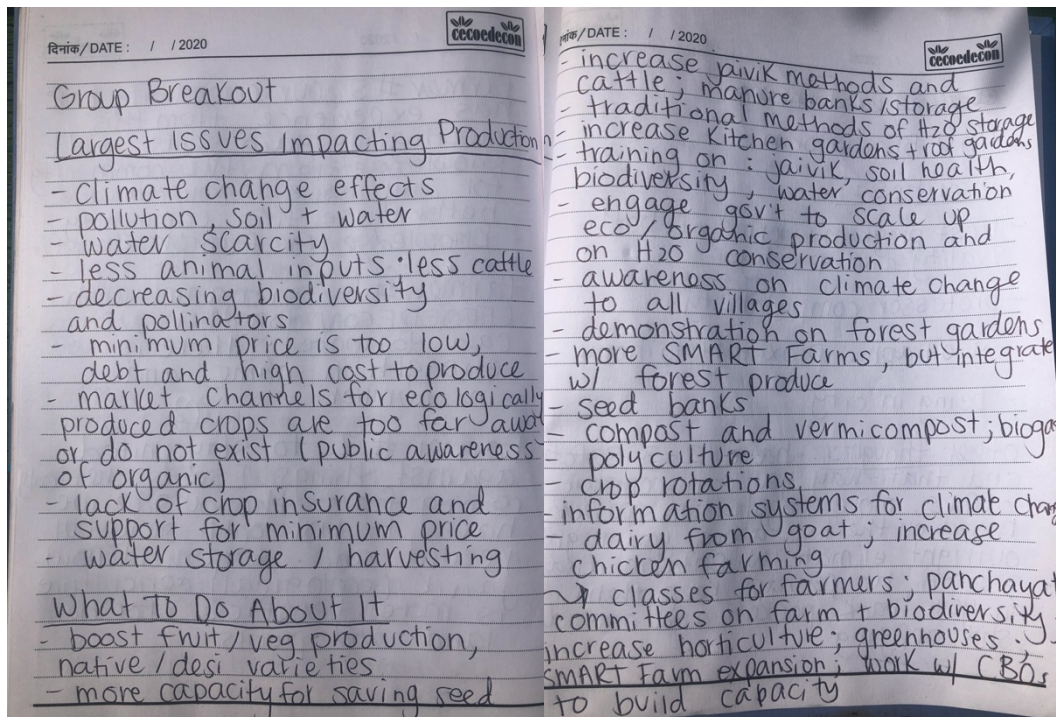 दिनांक/DATE : / / 2020
cecoedecon
Group Breakout
Largest Issues Impacting Production
- climate change effects
- pollution, soil + water
- water scarcity
- less animal inputs · less cattle
- decreasing biodiversity
and pollinators
- minimum price is too low,
debt and high cost to produce
- market channels for ecologically
produced crops are too far away
or do not exist (public awareness
of organic)
- lack of crop insurance and
support for minimum price
- water storage / harvesting
What To Do About It
- boost fruit/veg production,
native/desi varieties
- more capacity for saving seed
दिनांक/DATE : / / 2020
cecoedecon
- increase jaivik methods and
cattle; manure banks/storage
- traditional methods of H2O storage
- increase kitchen gardens + roof gardens
- training on : jaivik, soil health,
biodiversity, water conservation
- engage gov't to scale up
eco/organic production and
on H2O conservation
- awareness on climate change
to all villages
- demonstration on forest gardens
- more SMART Farms, but integrate
w/ forest produce
- seed banks
- compost and vermicompost; bioga
- polyculture
- crop rotations
- information systems for climate chan
- dairy from goat; increase
chicken farming
↳ classes for farmers; panchayat
committees on farm + biodiversity
increase horticulture; greenhouses;
SMART Farm expansion; work w/ CBOs
to build capacity